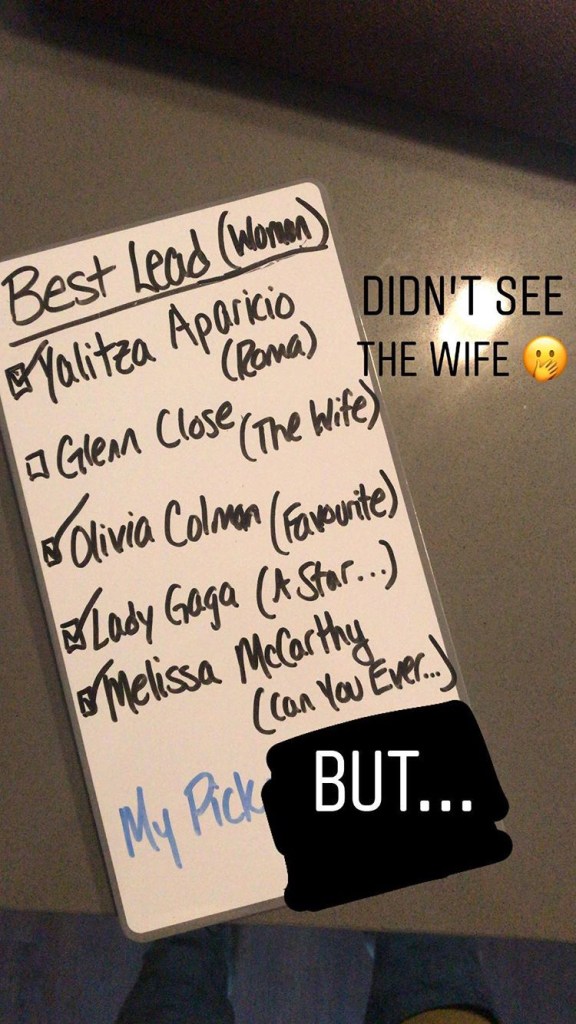 Best Lead (Women)
Yalitza Aparicio
(Roma)
Glenn Close (The Wife)
Olivia Colman (Favourite)
Lady Gaga (A Star...)
Melissa McCarthy
(Can You Ever...)
My Pick
DIDN'T SEE
THE WIFE 🤭
BUT...